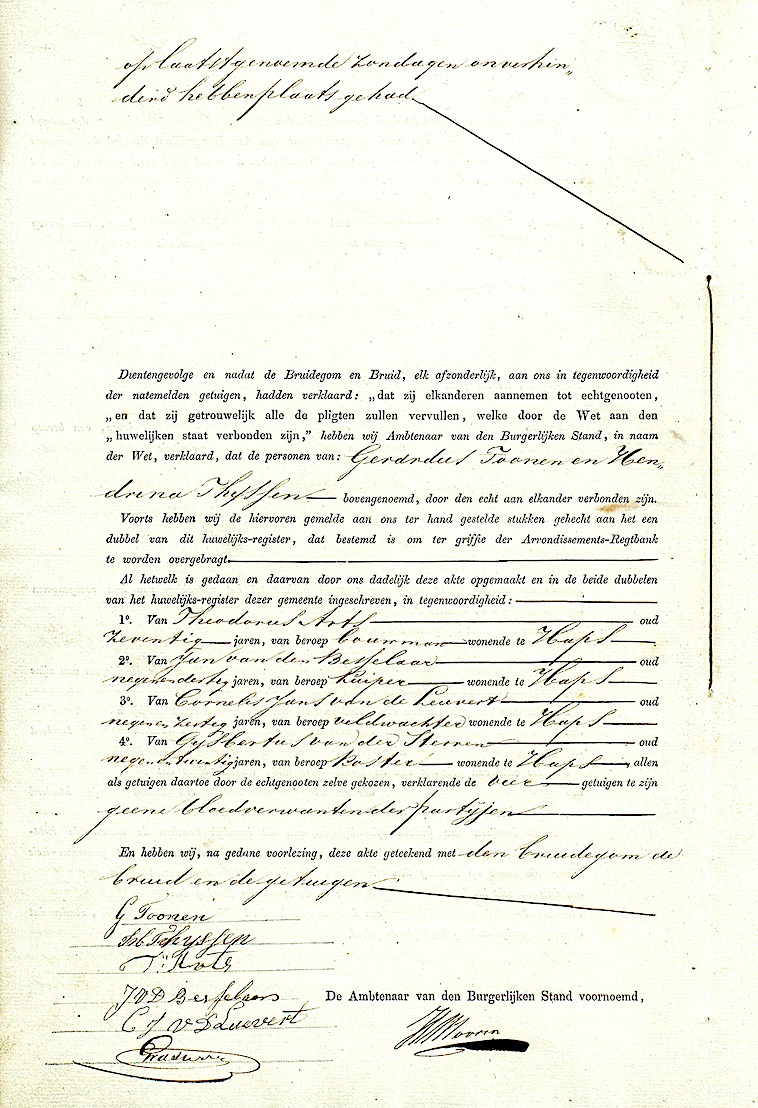 op laatstgenoemde zondagen onverhin„
derd hebben plaats gehad
Dientengevolge en nadat de Bruidegom en Bruid, elk afzonderlijk, aan ons in tegenwoordigheid
der natemelden getuigen, hadden verklaard: „dat zij elkanderen aannemen tot echtgenooten,
„en dat zij getrouwelijk alle de pligten zullen vervullen, welke door de Wet aan den
„huwelijken staat verbonden zijn,” hebben wij Ambtenaar van den Burgerlijken Stand, in naam
der Wet, verklaard, dat de personen van: Gerardus Toonen en Hen„
drina Thyssen bovengenoemd, door den echt aan elkander verbonden zijn.
Voorts hebben wij de hiervoren gemelde aan ons ter hand gestelde stukken gehecht aan het een
dubbel van dit huwelijks-register, dat bestemd is om ter griffie der Arrondissements-Regtbank
te worden overgebragt.
Al hetwelk is gedaan en daarvan door ons dadelijk deze akte opgemaakt en in de beide dubbelen
van het huwelijks-register dezer gemeente ingeschreven, in tegenwoordigheid:
1°. Van Theodorus Arts oud
zeventig jaren, van beroep bouwman wonende te Haps
2°. Van Jan van den Besselaar oud
negenendertig jaren, van beroep kuiper wonende te Haps
3°. Van Cornelis Jans van de Leuvert oud
negenen jaren, van beroep veldwachter wonende te Haps
4°. Van Gysbertus van der Sterren oud
negenentwintig jaren, van beroep koster wonende te Haps allen
als getuigen daartoe door de echtgenooten zelve gekozen, verklarende de vier getuigen te zijn
geene bloedverwanten der partyen
En hebben wij, na gedane voorlezing, deze akte geteekend met den bruidegom de
bruid en de getuigen
G Toonen
Thyssen
J V D Besselaar
C J V D Leuvert
De Ambtenaar van den Burgerlijken Stand voornoemd,